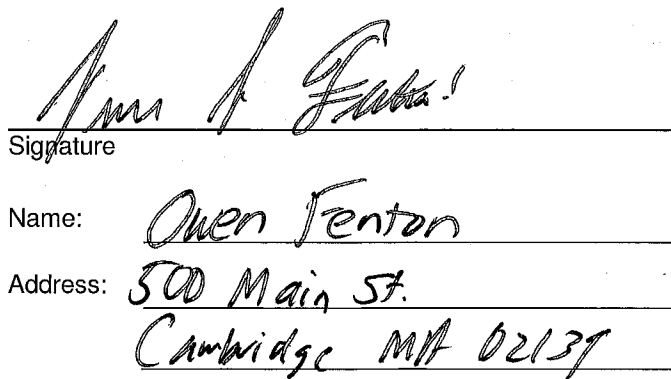 Signature
Name: Owen Fenton
Address: 500 Main St.
Cambridge MA 02139